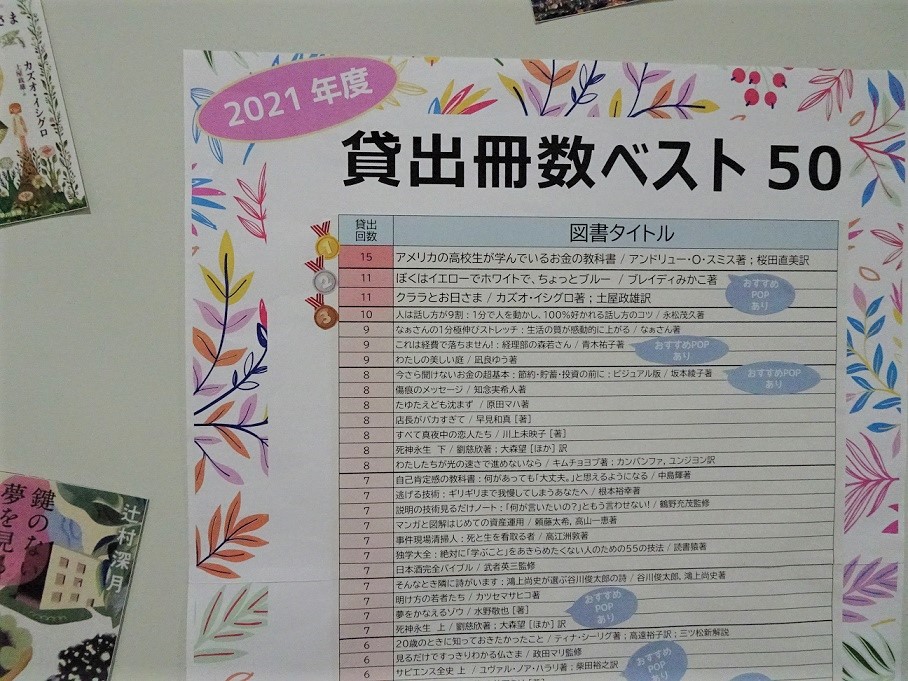 さま
カズオ・イシグロ
土屋政雄
2021 年度
貸出冊数ベスト 50
貸出回数 図書タイトル
15 アメリカの高校生が学んでいるお金の教科書 / アンドリュー・O・スミス著 ; 桜田直美訳
11 ぼくはイエローでホワイトで、ちょっとブルー / ブレイディみかこ著
11 クララとお日さま / カズオ・イシグロ著 ; 土屋政雄訳
おすすめ
POP
あり
10 人は話し方が9割 : 1分で人を動かし、100%好かれる話し方のコツ / 永松茂久著
9 なぁさんの1分極伸びストレッチ : 生活の質が感動的に上がる / なぁさん著
9 これは経費で落ちません! : 経理部の森若さん / 青木祐子著
おすすめPOP
あり
9 わたしの美しい庭 / 凪良ゆう著
8 今さら聞けないお金の超基本 : 節約・貯蓄・投資の前に : ビジュアル版 / 坂本綾子著
おすすめPOP
あり
8 傷痕のメッセージ / 知念実希人著
8 たゆたえども沈まず / 原田マハ著
8 店長がバカすぎて / 早見和真 [著]
8 すべて真夜中の恋人たち / 川上未映子 [著]
8 死神永生 下 / 劉慈欣著 ; 大森望 [ほか] 訳
8 わたしたちが光の速さで進めないなら / キムチョヨプ著 ; カンバンファ, ユンジヨン訳
7 自己肯定感の教科書 : 何があっても「大丈夫。」と思えるようになる / 中島輝著
7 逃げる技術 : ギリギリまで我慢してしまうあなたへ / 根本裕幸著
7 説明の技術見るだけノート : 「何が言いたいの?」ともう言わせない! / 鶴野充茂監修
7 マンガと図解はじめての資産運用 / 頼藤太希, 高山一恵著
7 事件現場清掃人 : 死と生を看取る者 / 高江洲敦著
7 独学大全 : 絶対に「学ぶこと」をあきらめたくない人のための55の技法 / 読書猿著
7 日本酒完全バイブル / 武者英三監修
7 そんなとき隣に詩がいます : 鴻上尚史が選ぶ谷川俊太郎の詩 / 谷川俊太郎, 鴻上尚史著
7 明け方の若者たち / カツセマサヒコ著
7 夢をかなえるゾウ / 水野敬也 [著]
おすすめ
POP
あり
7 死神永生 上 / 劉慈欣著 ; 大森望 [ほか] 訳
6 20歳のときに知っておきたかったこと / ティナ・シーリグ著 ; 高遠裕子訳 ; 三ツ松新解説
6 見るだけですっきりわかる仏さま / 政田マリ監修
6 サピエンス全史 上 / ユヴァル・ノア・ハラリ著 ; 柴田裕之訳
おすすめ
POP
あり
辻村深月
鍵のない
夢を見